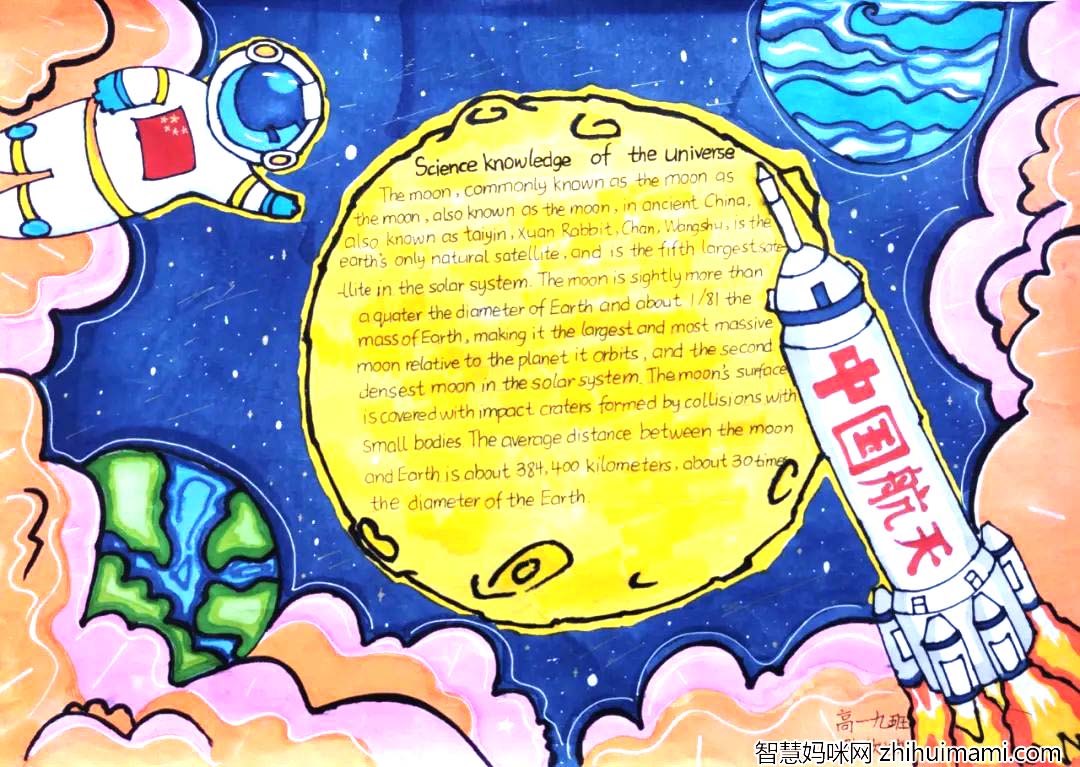 Science knowledge of the universe
The moon, commonly known as the moon as
the moon, also known as the moon, in ancient China,
also known as taiyin, Xuan Rabbit, Chan, Wangshu, is the
earth's only natural satellite, and is the fifth largest sate-
-llite in the solar system. The moon is sightly more than
a quater the diameter of Earth and about 1/81 the
mass of Earth, making it the largest and most massive
moon relative to the planet it orbits, and the second
densest moon in the solar system. The moon's surface
is covered with impact craters formed by collisions with
small bodies The average distance between the moon
and Earth is about 384,400 kilometers, about 30 times
the diameter of the Earth.
中国航天
高一九班
智慧妈咪网 zhihuimami.com